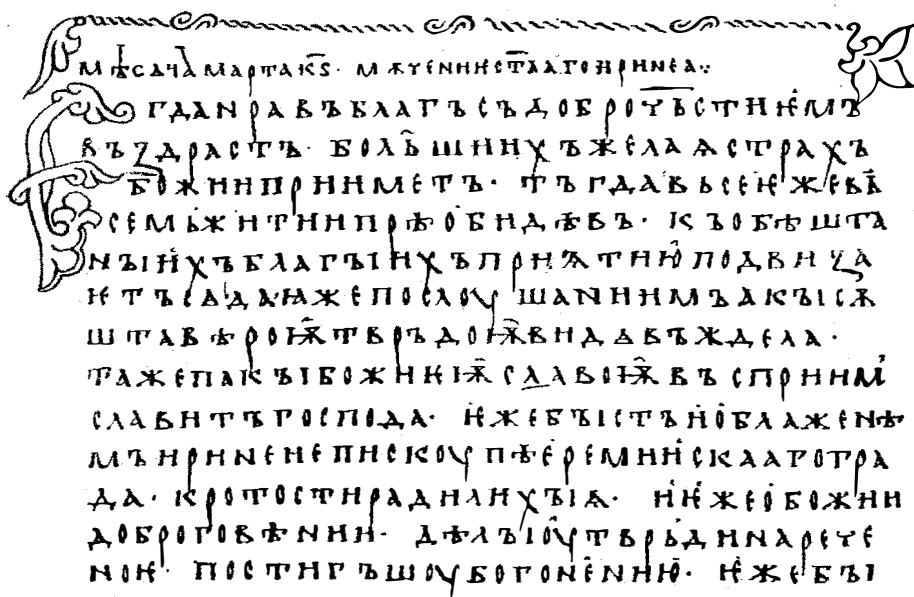 мѣсѧца марта к҃ѕ· мѫченик ст҃аа го иринеа·:·
Єгда нравъ благъ съ доброчьстиѥмъ
въздрастъ· больш̑иихъ желаѩ страхъ
божии прииметъ· тъгда вьсе ѥже въ
семь житии прѣобидѣвъ· къ обѣшта
ныи҆хъ благыихъ приѩтию҆ подвиза
ѥтъ сѧ да ꙗже послоушаниимъ акы сѫ
шта вѣроѭ твръдоѭ видѣвъ ждела·
таже пакы божиѥѭ славоѭ въсприим҄
славитъ господа· ѥже быстъ и҆ о блаженѣ
мъ иринеи епискоупѣ ѥремиискааго гра
да· кротости ради лихыѩ· и҆ ѥже о҆ божии
доброговѣнии· дѣлы оу҆твръди нарече
ноѥ· постигъшоу бо гонению҆· ѥже бы